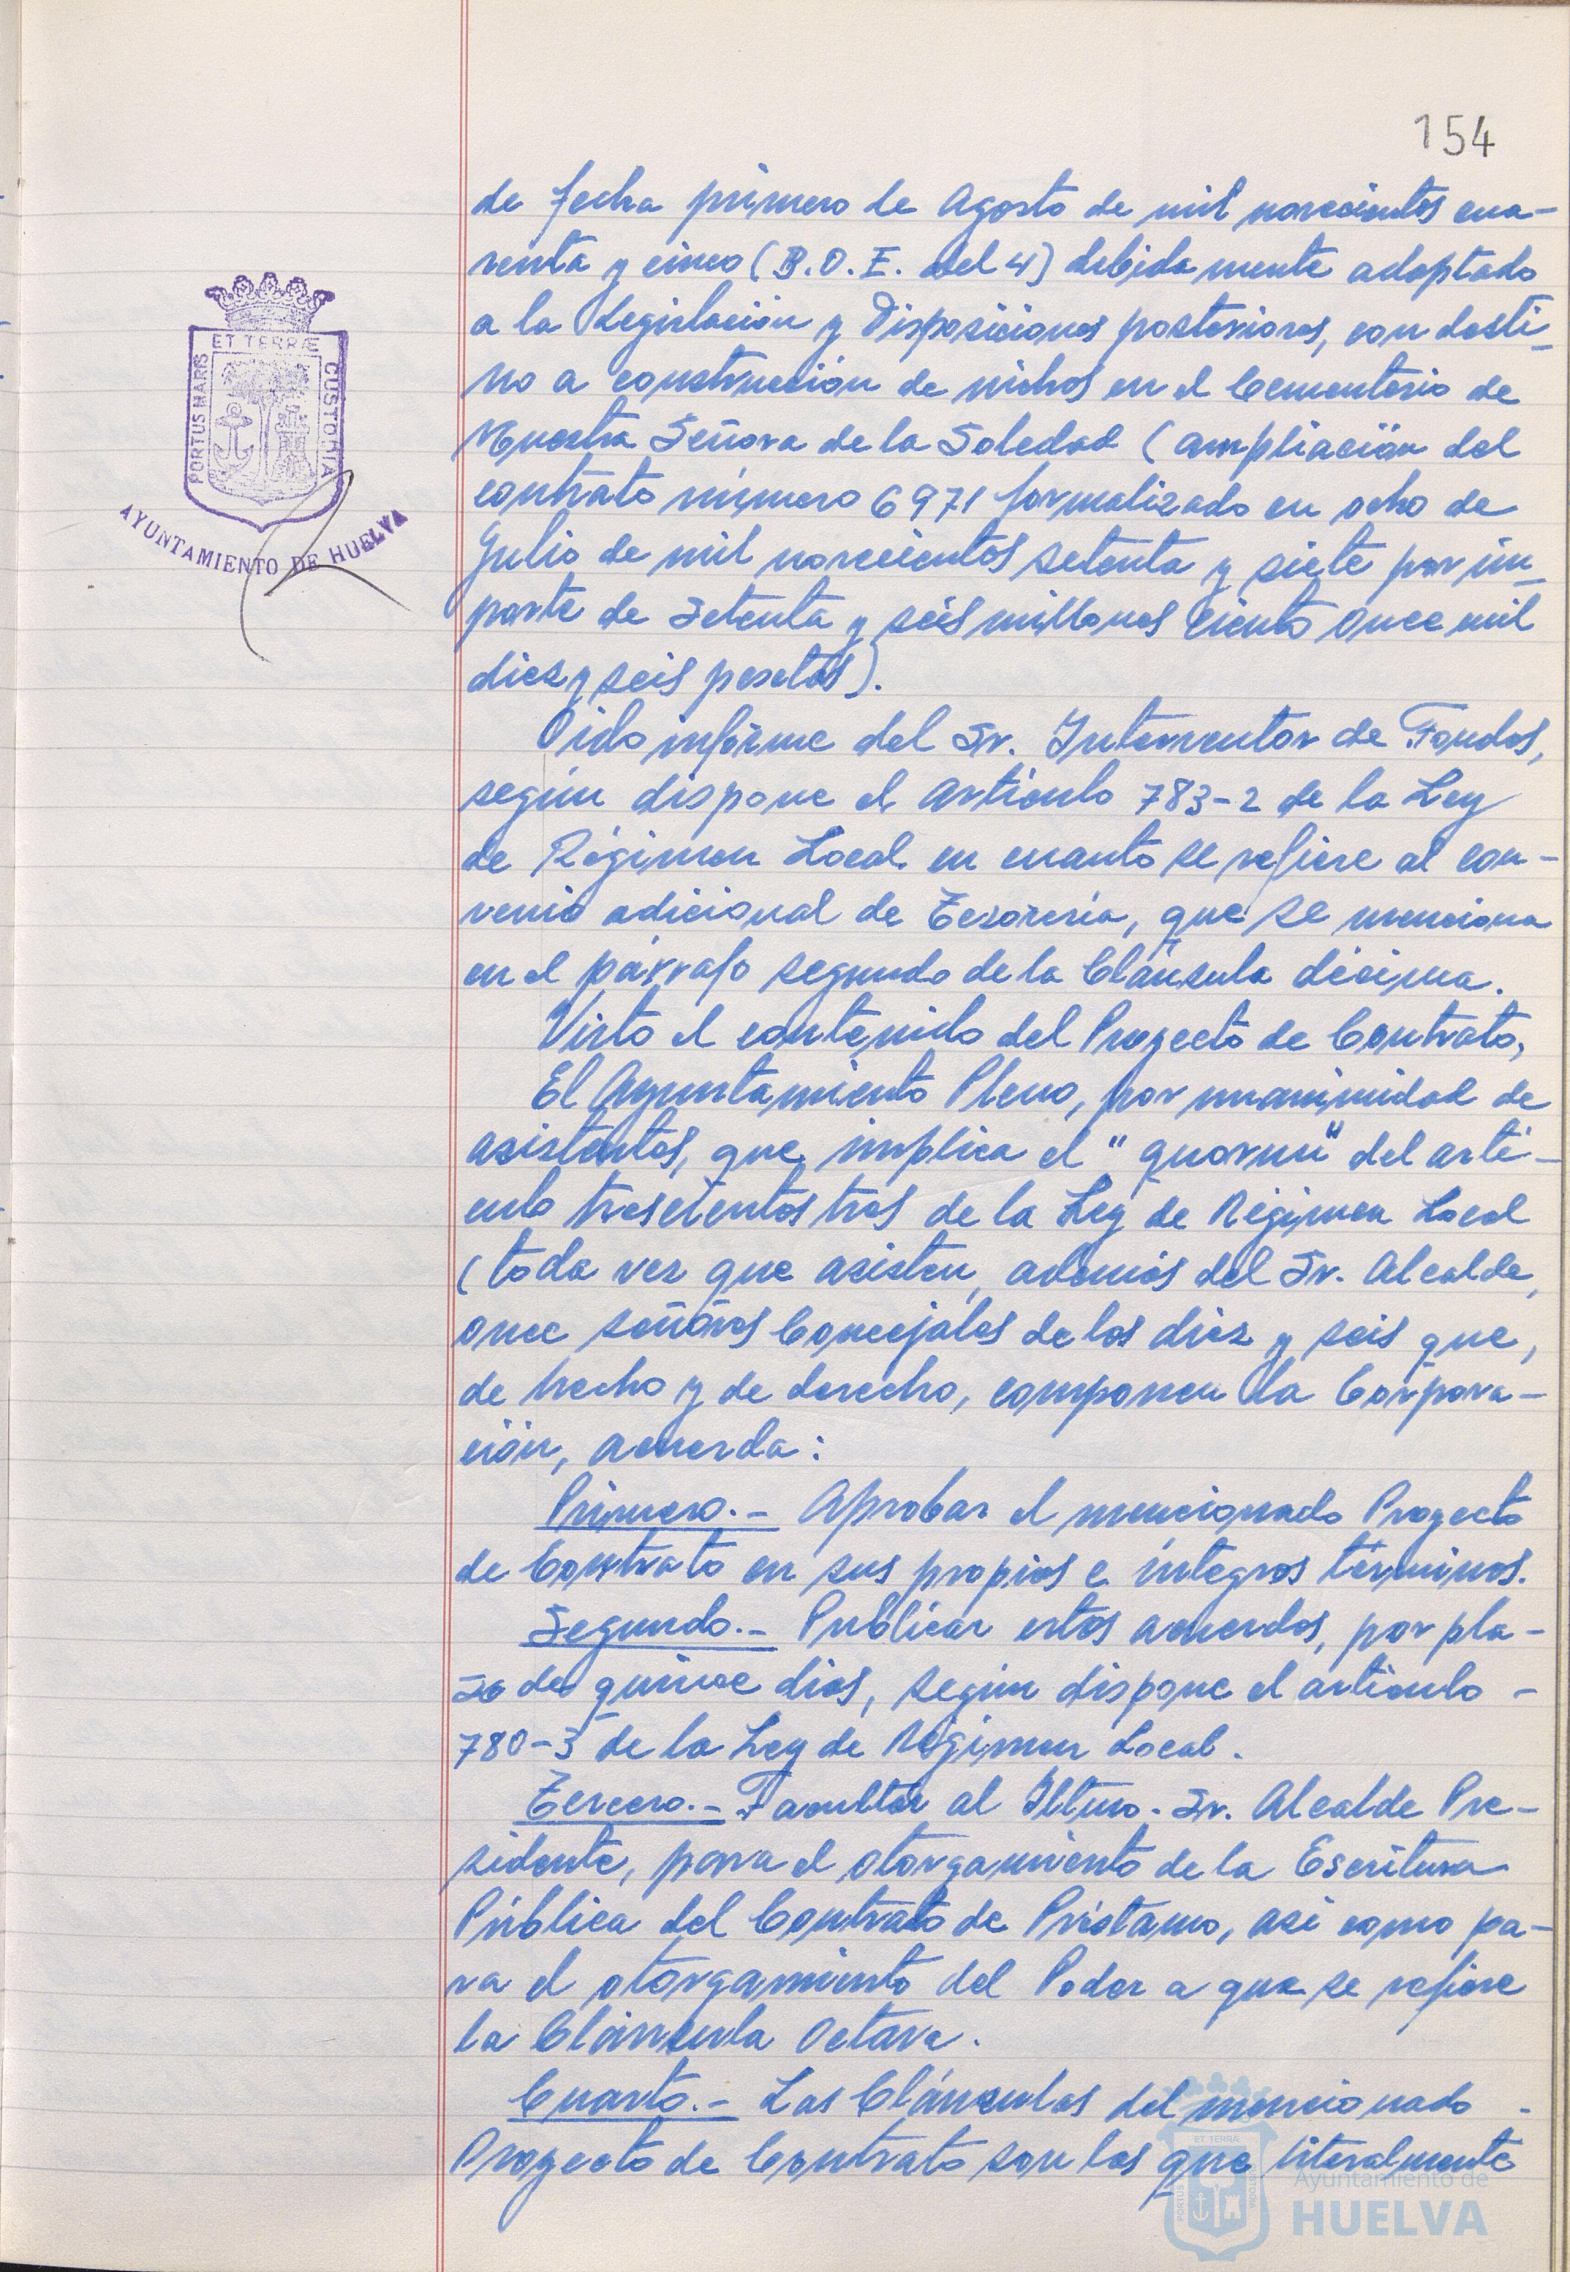 154
de fecha primero de Agosto de mil novecientos cua-
renta y cinco (B.O.E. del 4) debidamente adaptado
a la Legislación y Disposiciones posteriores, con desti-
no a construcción de nichos en el Cementerio de
Nuestra Señora de la Soledad (ampliación del
contrato número 6971 formalizado en ocho de
Julio de mil novecientos setenta y siete por im-
porte de setenta y seis millones ciento once mil
diez y seis pesetas).
Oido informe del Sr. Interventor de Fondos,
según dispone el artículo 783-2 de la Ley
de Régimen Local en cuanto se refiere al con-
venio adicional de Tesorería, que se menciona
en el párrafo segundo de la Cláusula décima.
Visto el contenido del Proyecto de Contrato,
El Ayuntamiento Pleno, por unanimidad de
asistentes, que implica el "quorum" del artí-
culo trescientos tres de la Ley de Régimen Local
(toda vez que asisten, además del Sr. Alcalde,
once señores Concejales de los diez y seis que,
de hecho y de derecho, componen la Corpora-
ción, acuerda:
Primero.- Aprobar el mencionado Proyecto
de Contrato en sus propios e íntegros términos.
Segundo.- Publicar estos acuerdos, por pla-
zo de quince dias, según dispone el artículo -
780-3 de la Ley de Régimen Local.
Tercero.- Facultar al Iltmo. Sr. Alcalde Pre-
sidente, para el otorgamiento de la Escritura
Pública del Contrato de Préstamo, asi como pa-
ra el otorgamiento del Poder a que se refiere
la Cláusula Octava.
Cuarto.- Las Cláusulas del mencionado -
Proyecto de Contrato son las que literalmente
PORTUS MARIS ET TERRÆ CUSTODIA
AYUNTAMIENTO DE HUELVA
Ayuntamiento de
HUELVA